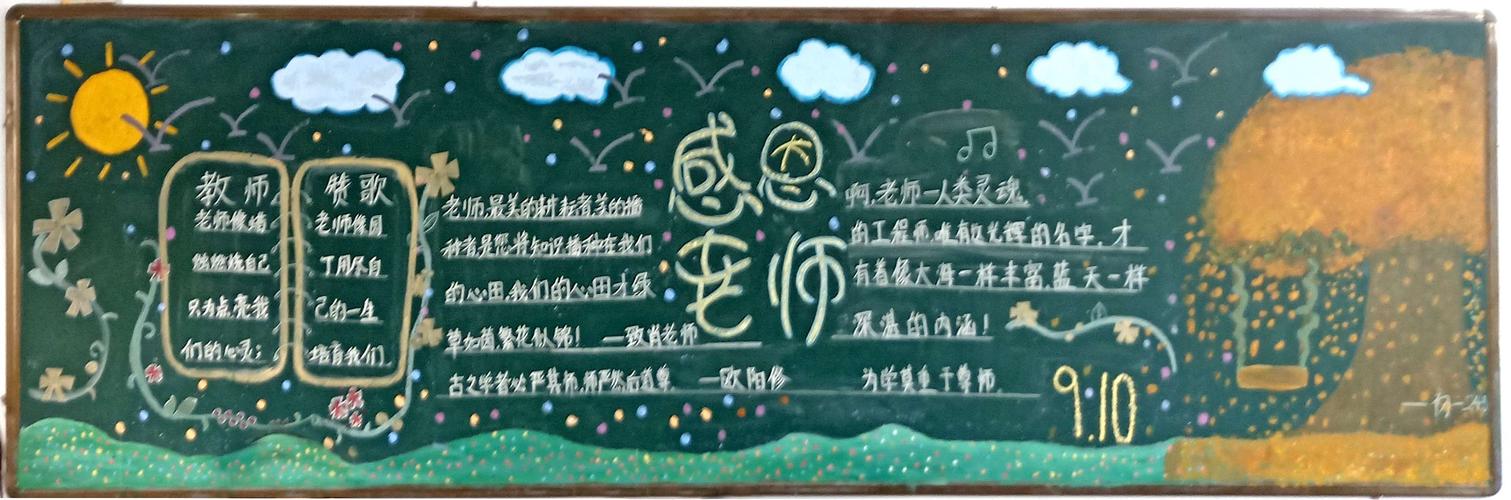 教师
老师像蜡
烛燃烧自己
只为点亮我
们的心灵;
赞歌
老师像园
丁用尽自
己的一生
培育我们
老师,最美的耕耘者,美的播
种者是您,将知识播种在我们
的心田,我们的心田才绿
草如茵,繁花似锦! —致肖老师
古之学者必严其师,师严然后道尊 —欧阳修
感恩
老师
啊,老师—人类灵魂
的工程师,唯有这光辉的名字,才
有着像大海一样丰富,蓝天一样
深湛的内涵!
为学莫重于尊师.
9.10